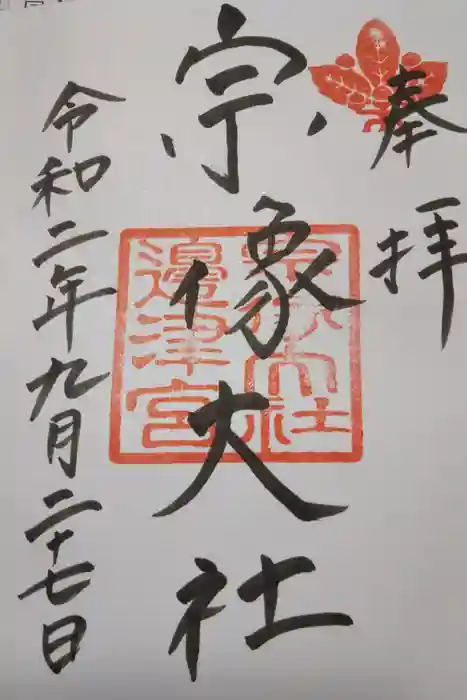 奉拝
宗像大社
宗像大社
邊津宮
令和二年九月二十七日